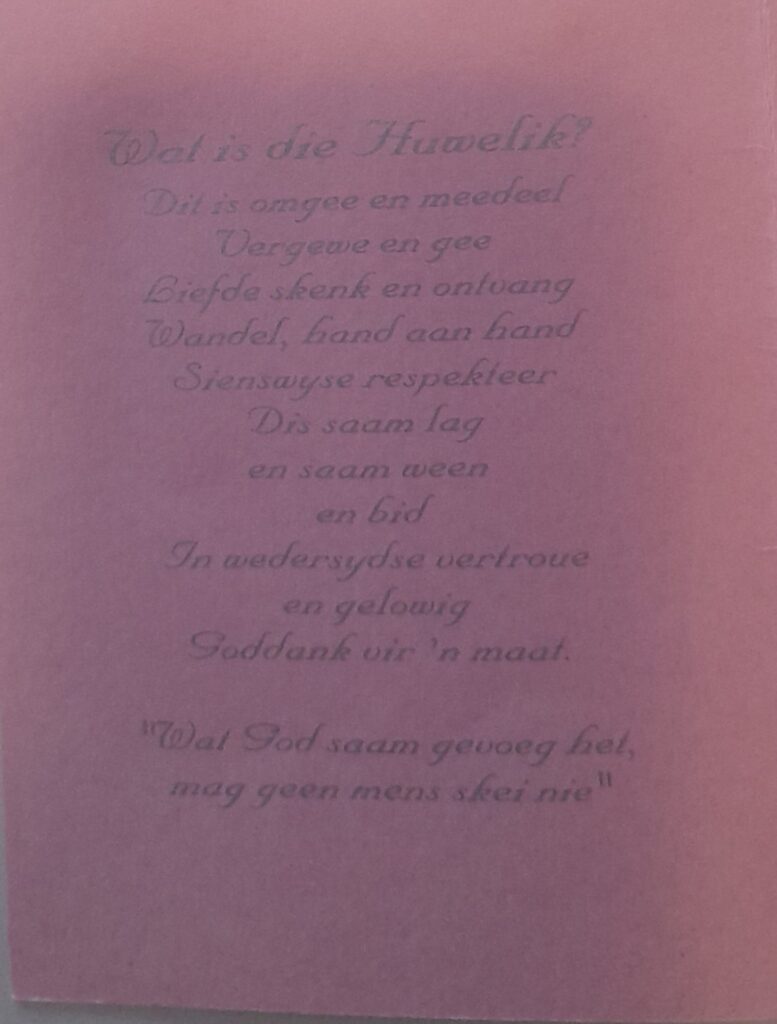 Wat is die Huwelik?
Dit is omgee en meedeel
Vergewe en gee
Liefde skenk en ontvang
Wandel, hand aan hand
Sienswyse respekteer
Dis saam lag
en saam ween
en bid
In wedersydse vertroue
en gelowig
Goddank vir 'n maat.
"Wat God saam gevoeg het,
mag geen mens skei nie"